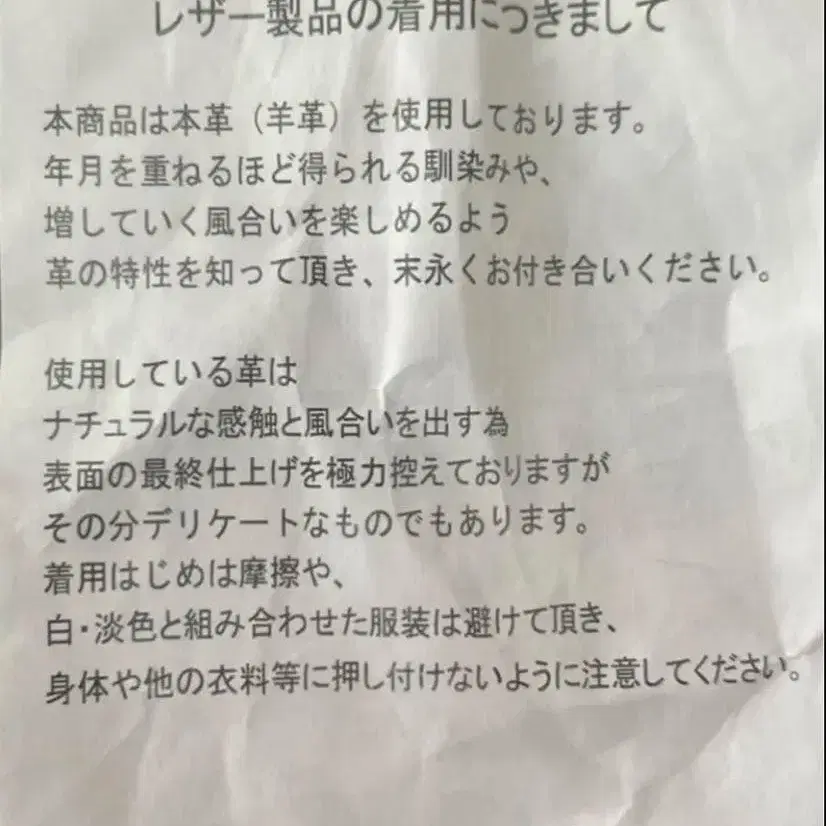 レザー製品の着用につきまして
本商品は本革（羊革）を使用しております。
年月を重ねるほど得られる馴染みや、
増していく風合いを楽しめるよう
革の特性を知って頂き、末永くお付き合いください。
使用している革は
ナチュラルな感触と風合いを出す為
表面の最終仕上げを極力控えておりますが
その分デリケートなものでもあります。
着用はじめは摩擦や、
白・淡色と組み合わせた服装は避けて頂き、
身体や他の衣料等に押し付けないように注意してください。